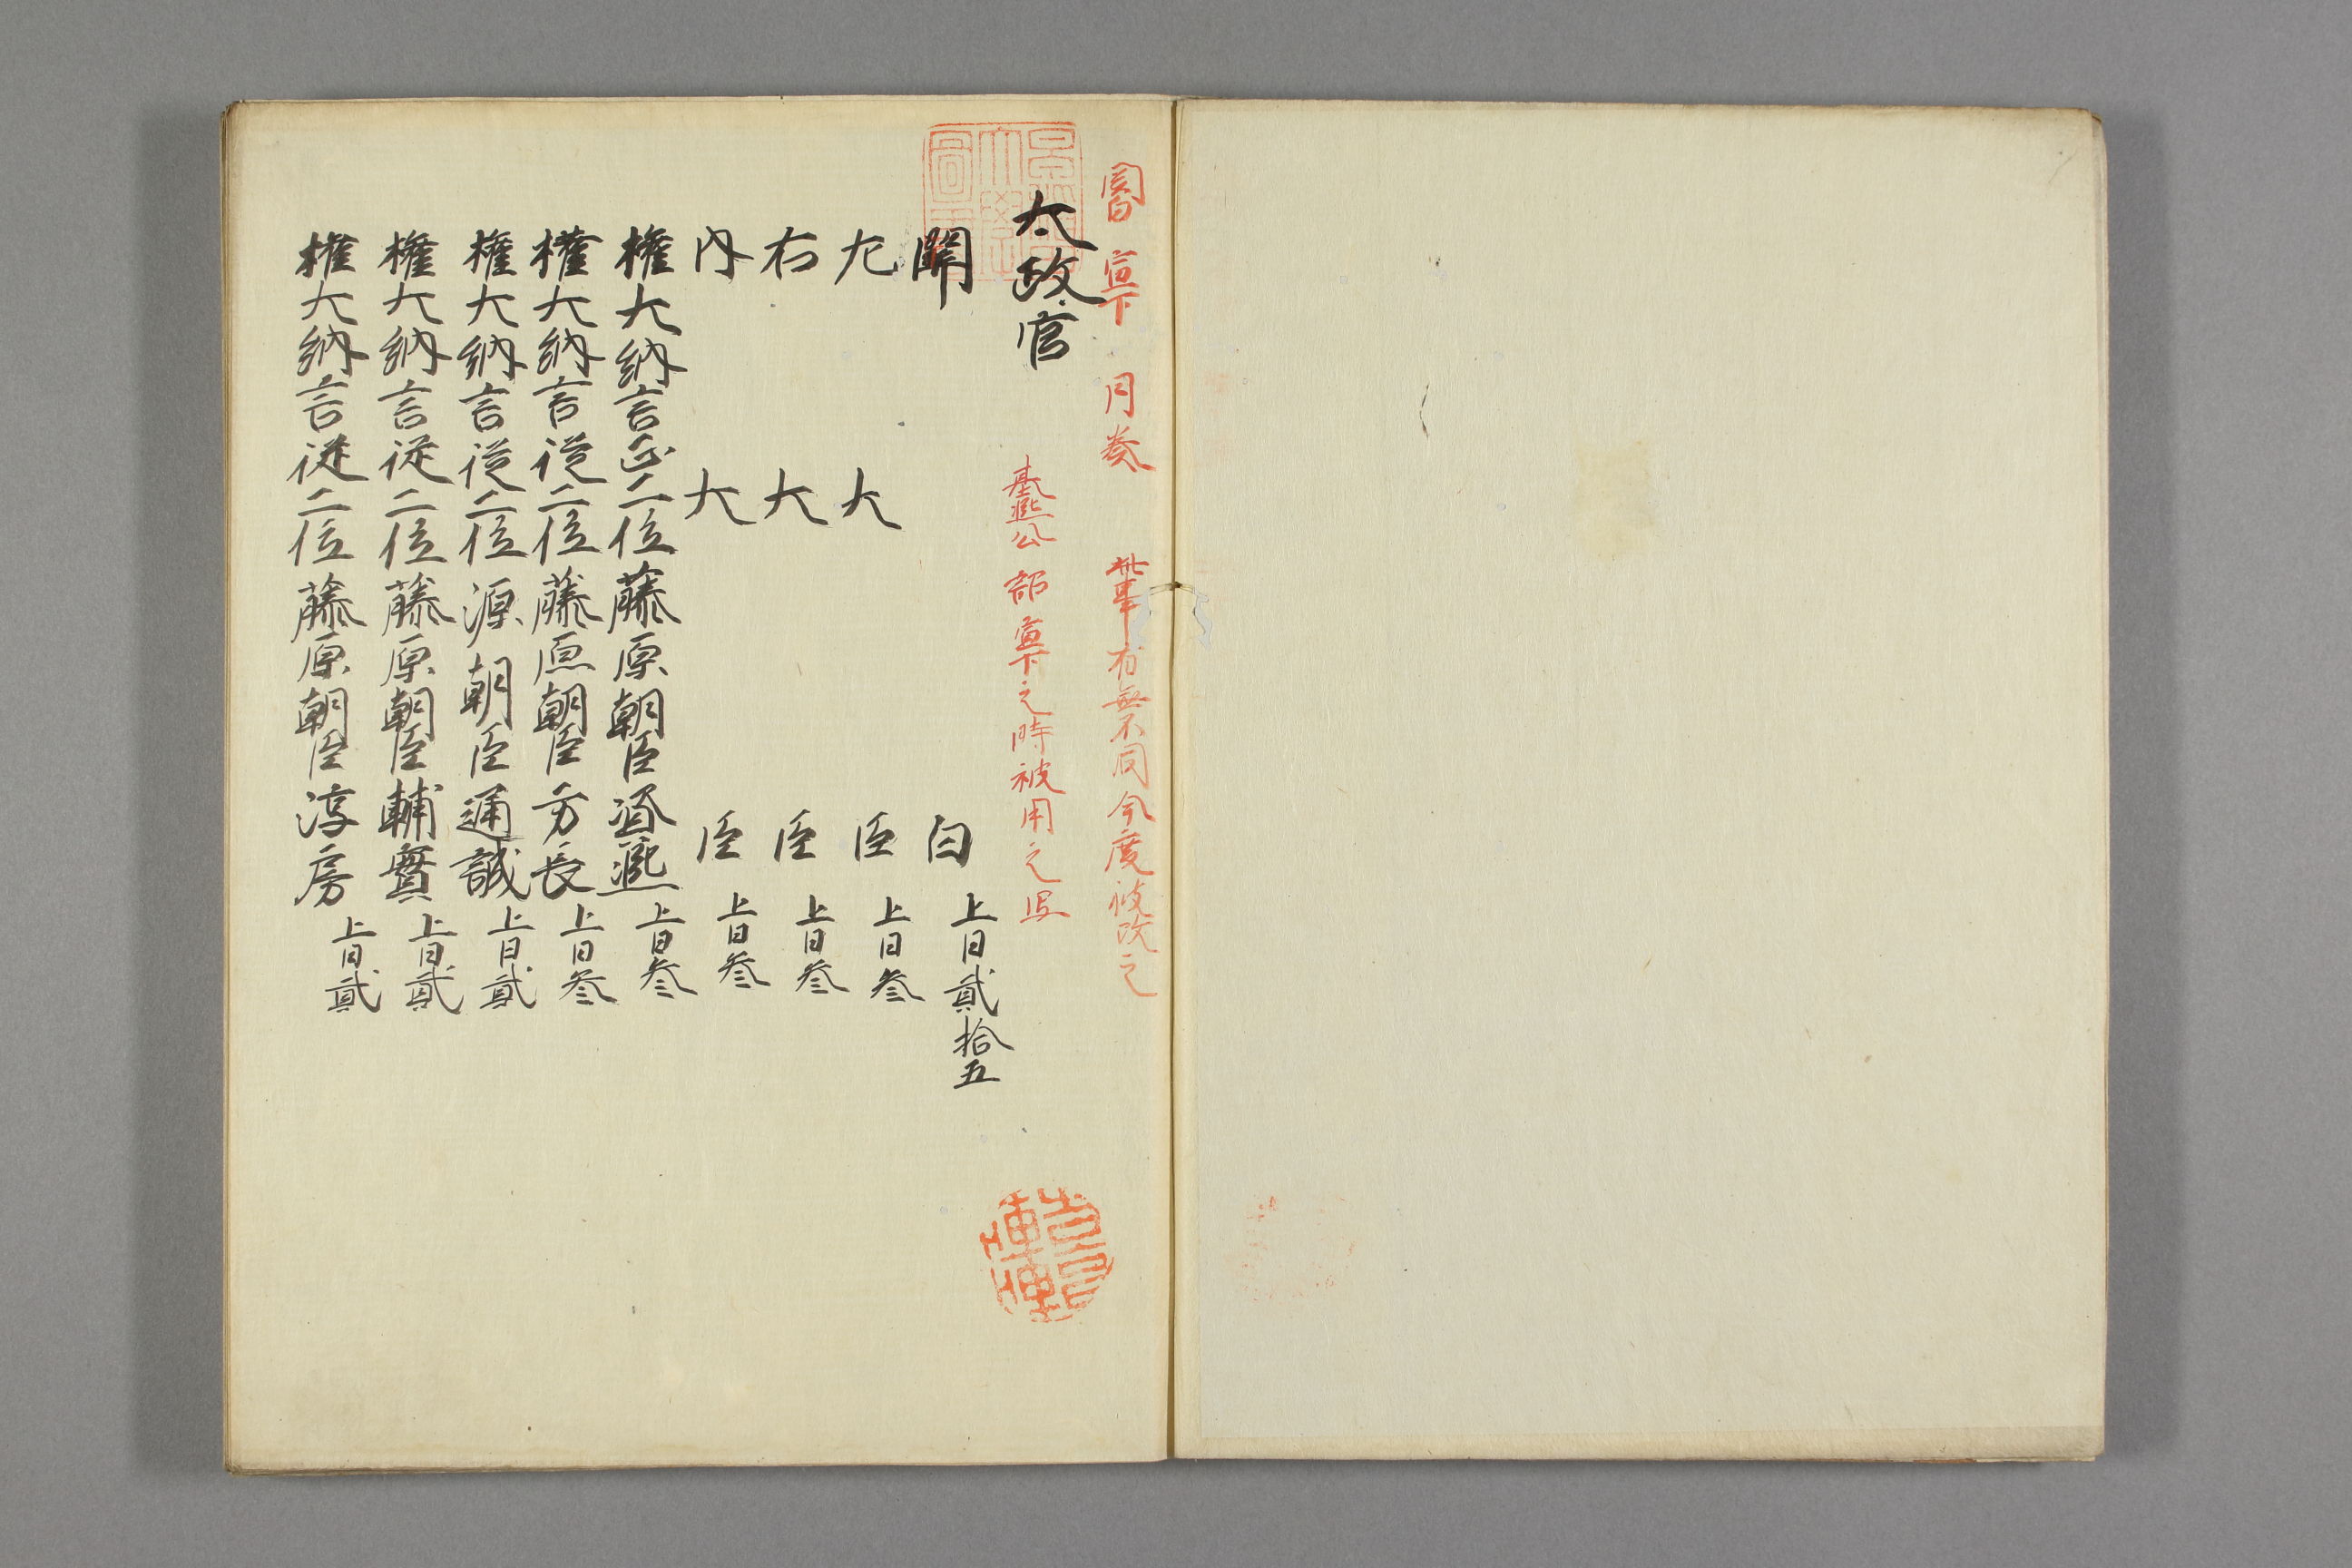 関白宣下 月奏 此事有無不同今度被改之
基熈公 詔宣下之時被用之
太政官
關白 上日貳拾五
左大臣 上日叄
右大臣 上日叄
内大臣 上日叄
權大納言正二位藤原朝臣 熈 上日叄
權大納言從二位藤原朝臣方長 上日叄
權大納言從二位源朝臣通誠 上日貳
權大納言從二位藤原朝臣輔實 上日貳
權大納言從二位藤原朝臣淳房 上日貳